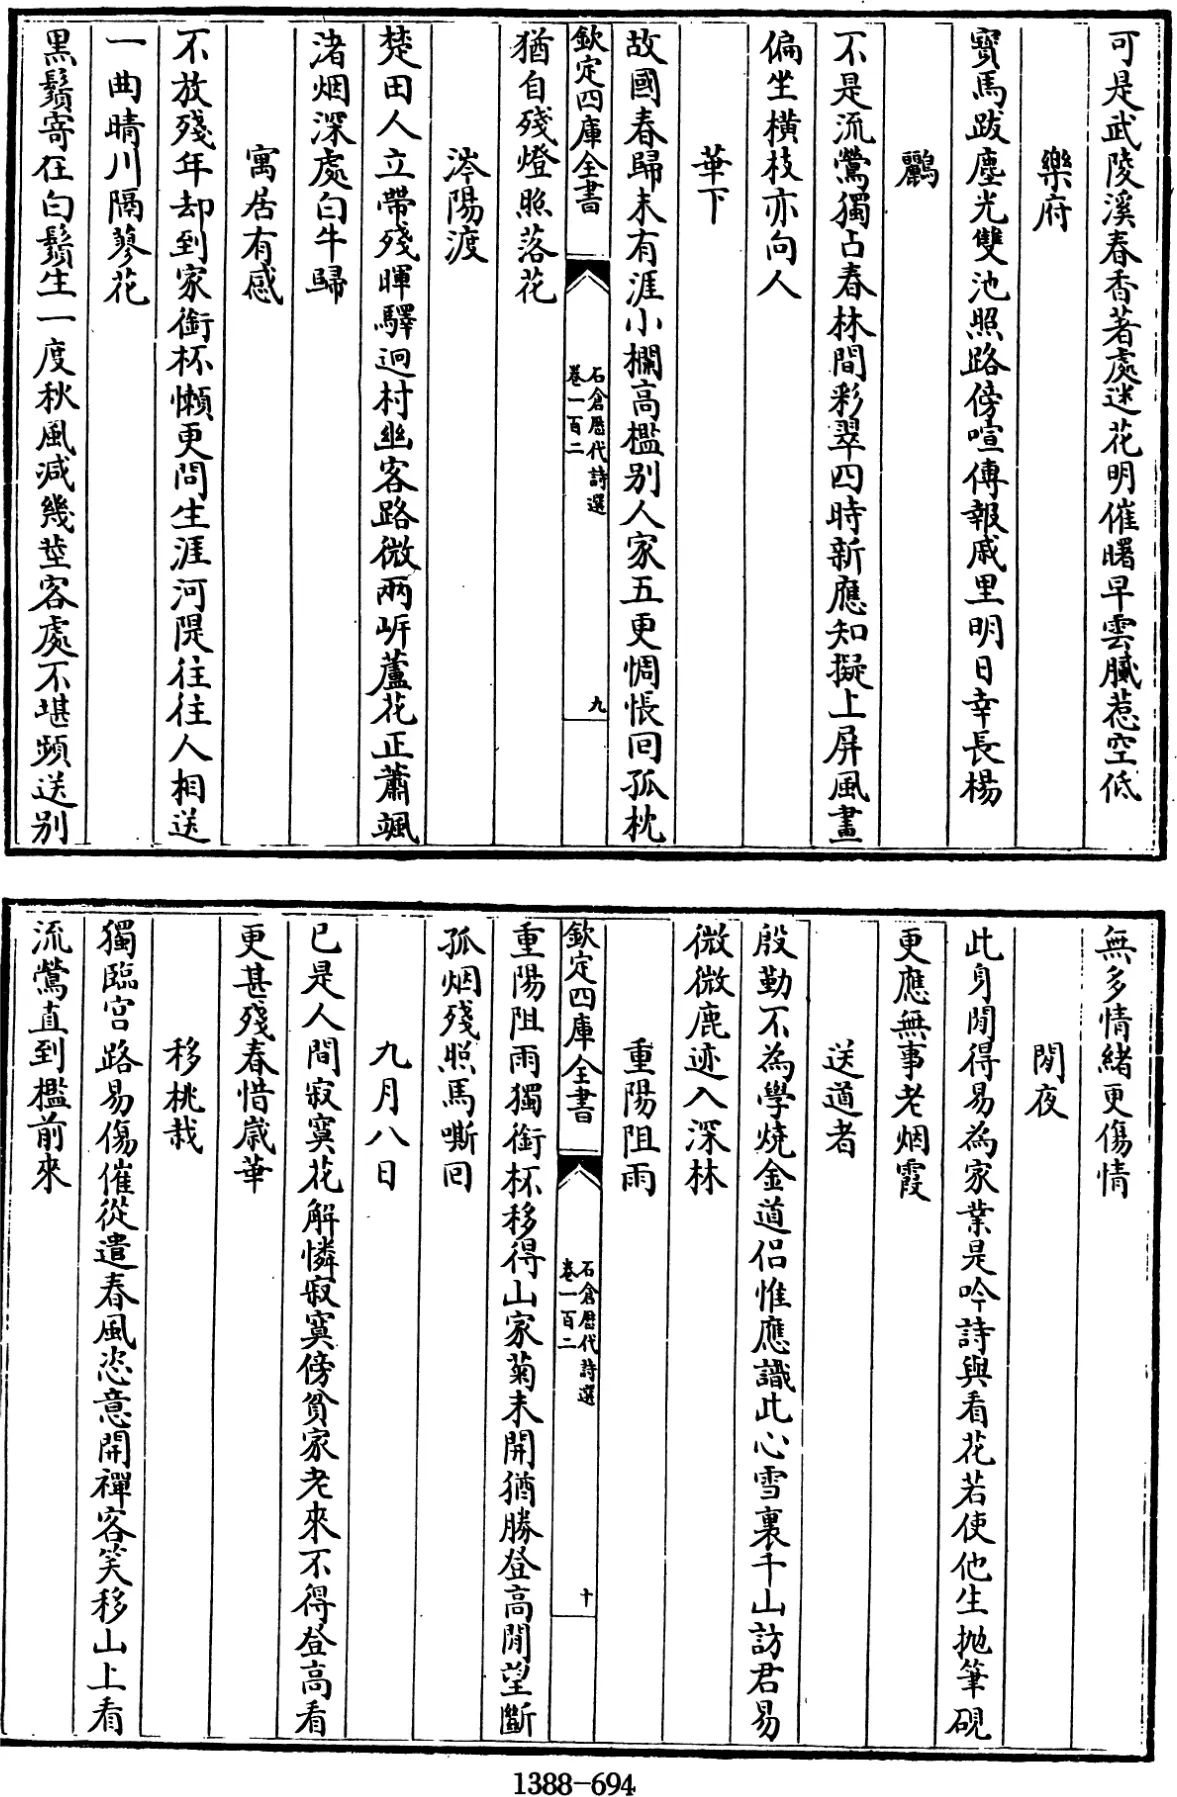 可是武陵溪春香著處迷花明催曙早雲膩惹空低
樂府
寳馬跋塵光雙池照路傍喧傳報戚里明日幸長楊
鸝
不是流鶯獨占春林間彩翠四時新應知擬上屏風畫
偏坐橫枝亦向人
華下
故國春歸未有涯小欄高檻别人家五更惆悵回孤枕
欽定四庫全書
石倉歴代詩選
卷一百二
九
猶自殘燈照落花
涔陽渡
楚田人立帶殘暉驛逈村幽客路微兩岸蘆花正蕭颯
渚烟深處白牛歸
寓居有感
不放殘年却到家銜杯懶更問生涯河隄往往人相送
一曲晴川隔蓼花
黒鬚寄在白鬚生一度秋風減幾莖客處不堪頻送别
無多情緒更傷情
閒夜
此身閒得易為家業是吟詩與看花若使他生抛筆硯
更應無事老烟霞
送道者
殷勤不為學燒金道侣惟應識此心雪裏千山訪君易
微微鹿迹入深林
重陽阻雨
重陽阻雨獨銜杯移得山家菊未開猶勝登高閒望斷
欽定四庫全書
石倉歴代詩選
卷一百二
十
孤烟殘照馬嘶回
九月八日
已是人間寂寞花解憐寂寞傍貧家老來不得登高看
更甚殘春惜歳華
移桃栽
獨臨宫路易傷催從遣春風恣意開禪客笑移山上看
流鶯直到檻前來
1388-694